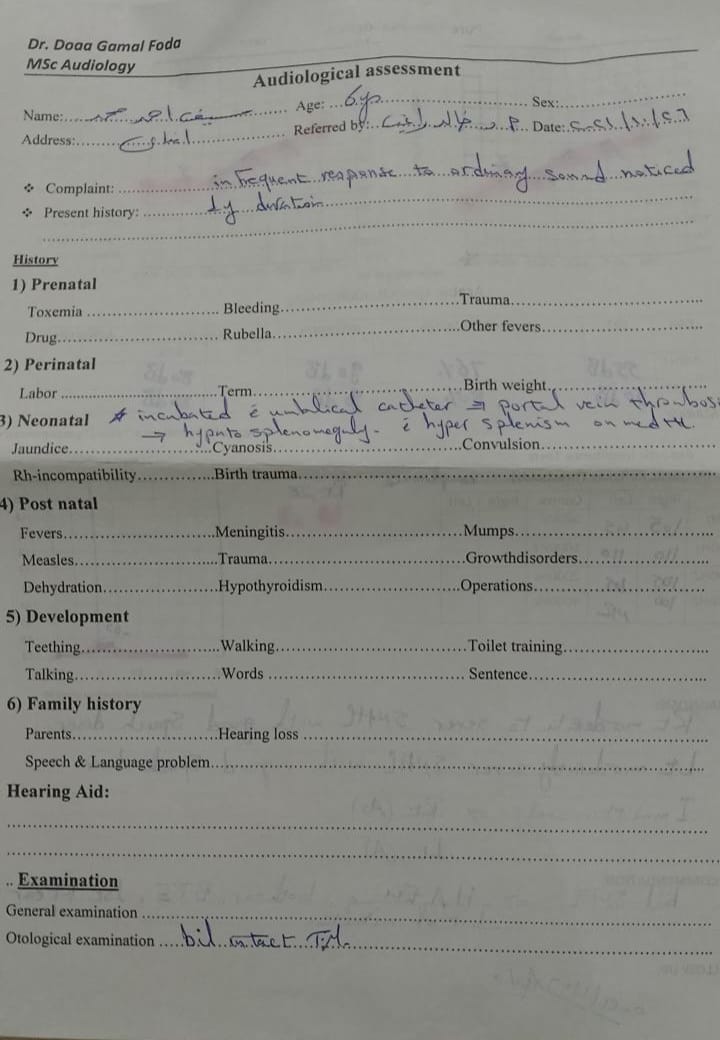 Dr. Doaa Gamal Foda
MSc Audiology
Audiological assessment
Name: احمد Age: 6 yo Sex:
Address: Referred by: د. خالد Date:
❖ Complaint: infrequent response to ordinary sound noticed
❖ Present history: duration
History
1) Prenatal
Toxemia Bleeding Trauma
Drug Rubella Other fevers
2) Perinatal
Labor Term Birth weight
3) Neonatal * incubated c̄ umblical catheter ⇒ portal vein thrombosi
→ splenomegaly - c̄ hyper splenism on med ttt.
Jaundice Cyanosis Convulsion
Rh-incompatibility Birth trauma
4) Post natal
Fevers Meningitis Mumps
Measles Trauma Growthdisorders
Dehydration Hypothyroidism Operations
5) Development
Teething Walking Toilet training
Talking Words Sentence
6) Family history
Parents Hearing loss
Speech & Language problem
Hearing Aid:
.. Examination
General examination
Otological examination bil intact T.M.